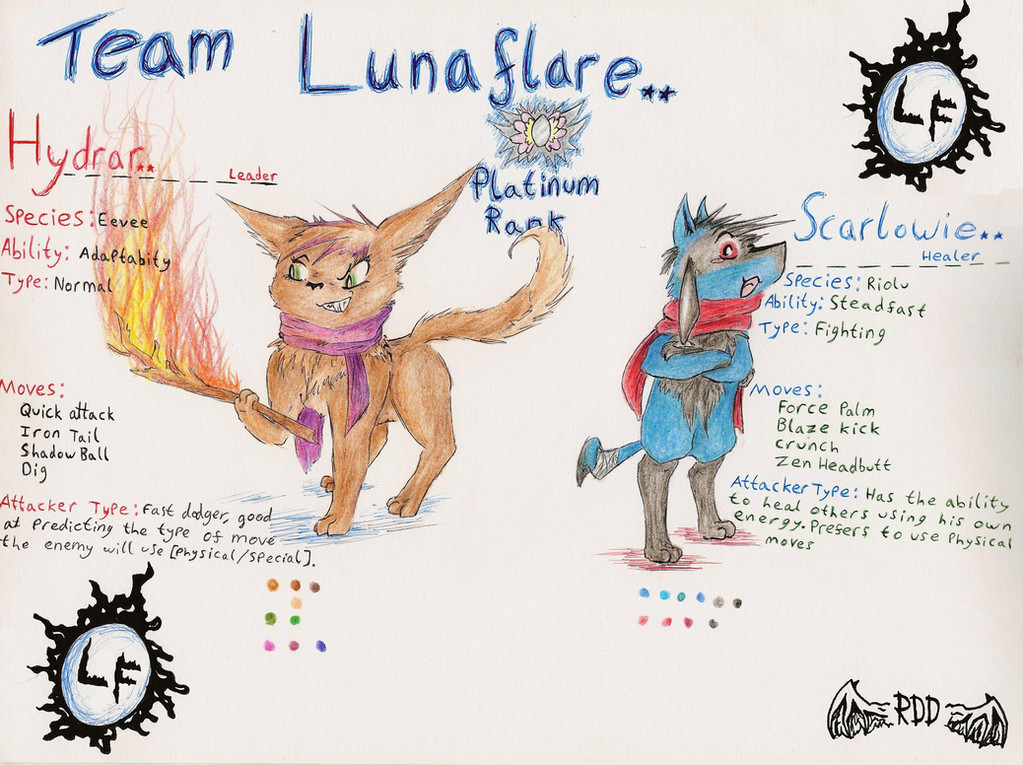 Team Lunaflare..
LF
Hydrar..
Leader
Species: Eevee
Ability: Adaptabity
Type: Normal
Moves:
Quick attack
Iron Tail
Shadow Ball
Dig
Attacker Type: Fast dodger, good
at predicting the type of move
the enemy will use [Physical/Special].
Platinum
Rank
Scarlowie..
Healer
Species: Riolu
Ability: Steadfast
Type: Fighting
Moves:
Force Palm
Blaze kick
crunch
Zen Headbutt
Attacker Type: Has the ability
to heal others using his own
energy. Prefers to use Physical
moves
LF
RDD